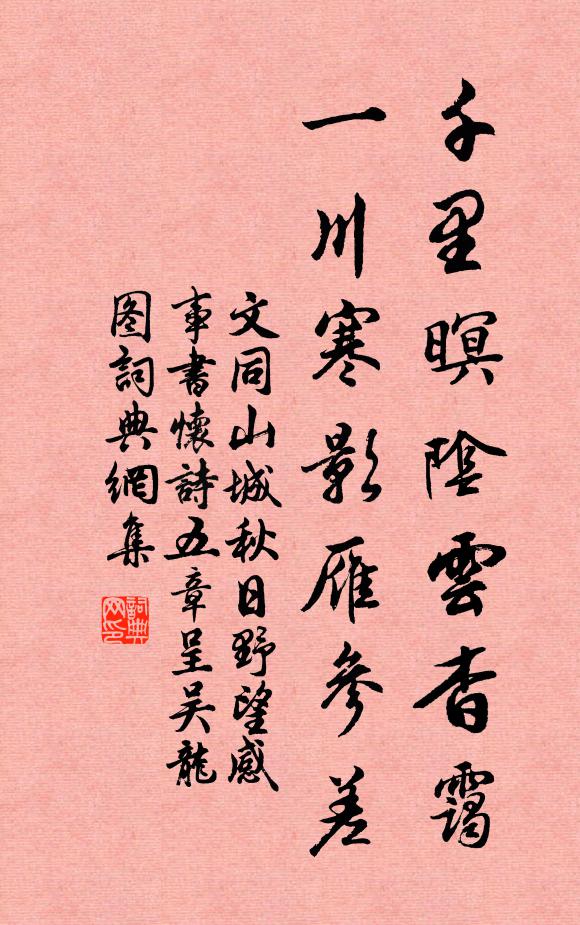 千里暝陰雲杳靄
一川寒影雁參差
文同山城秋日野望感
事書懷詩五章呈吴龍
图詞典網集
詞典
网印